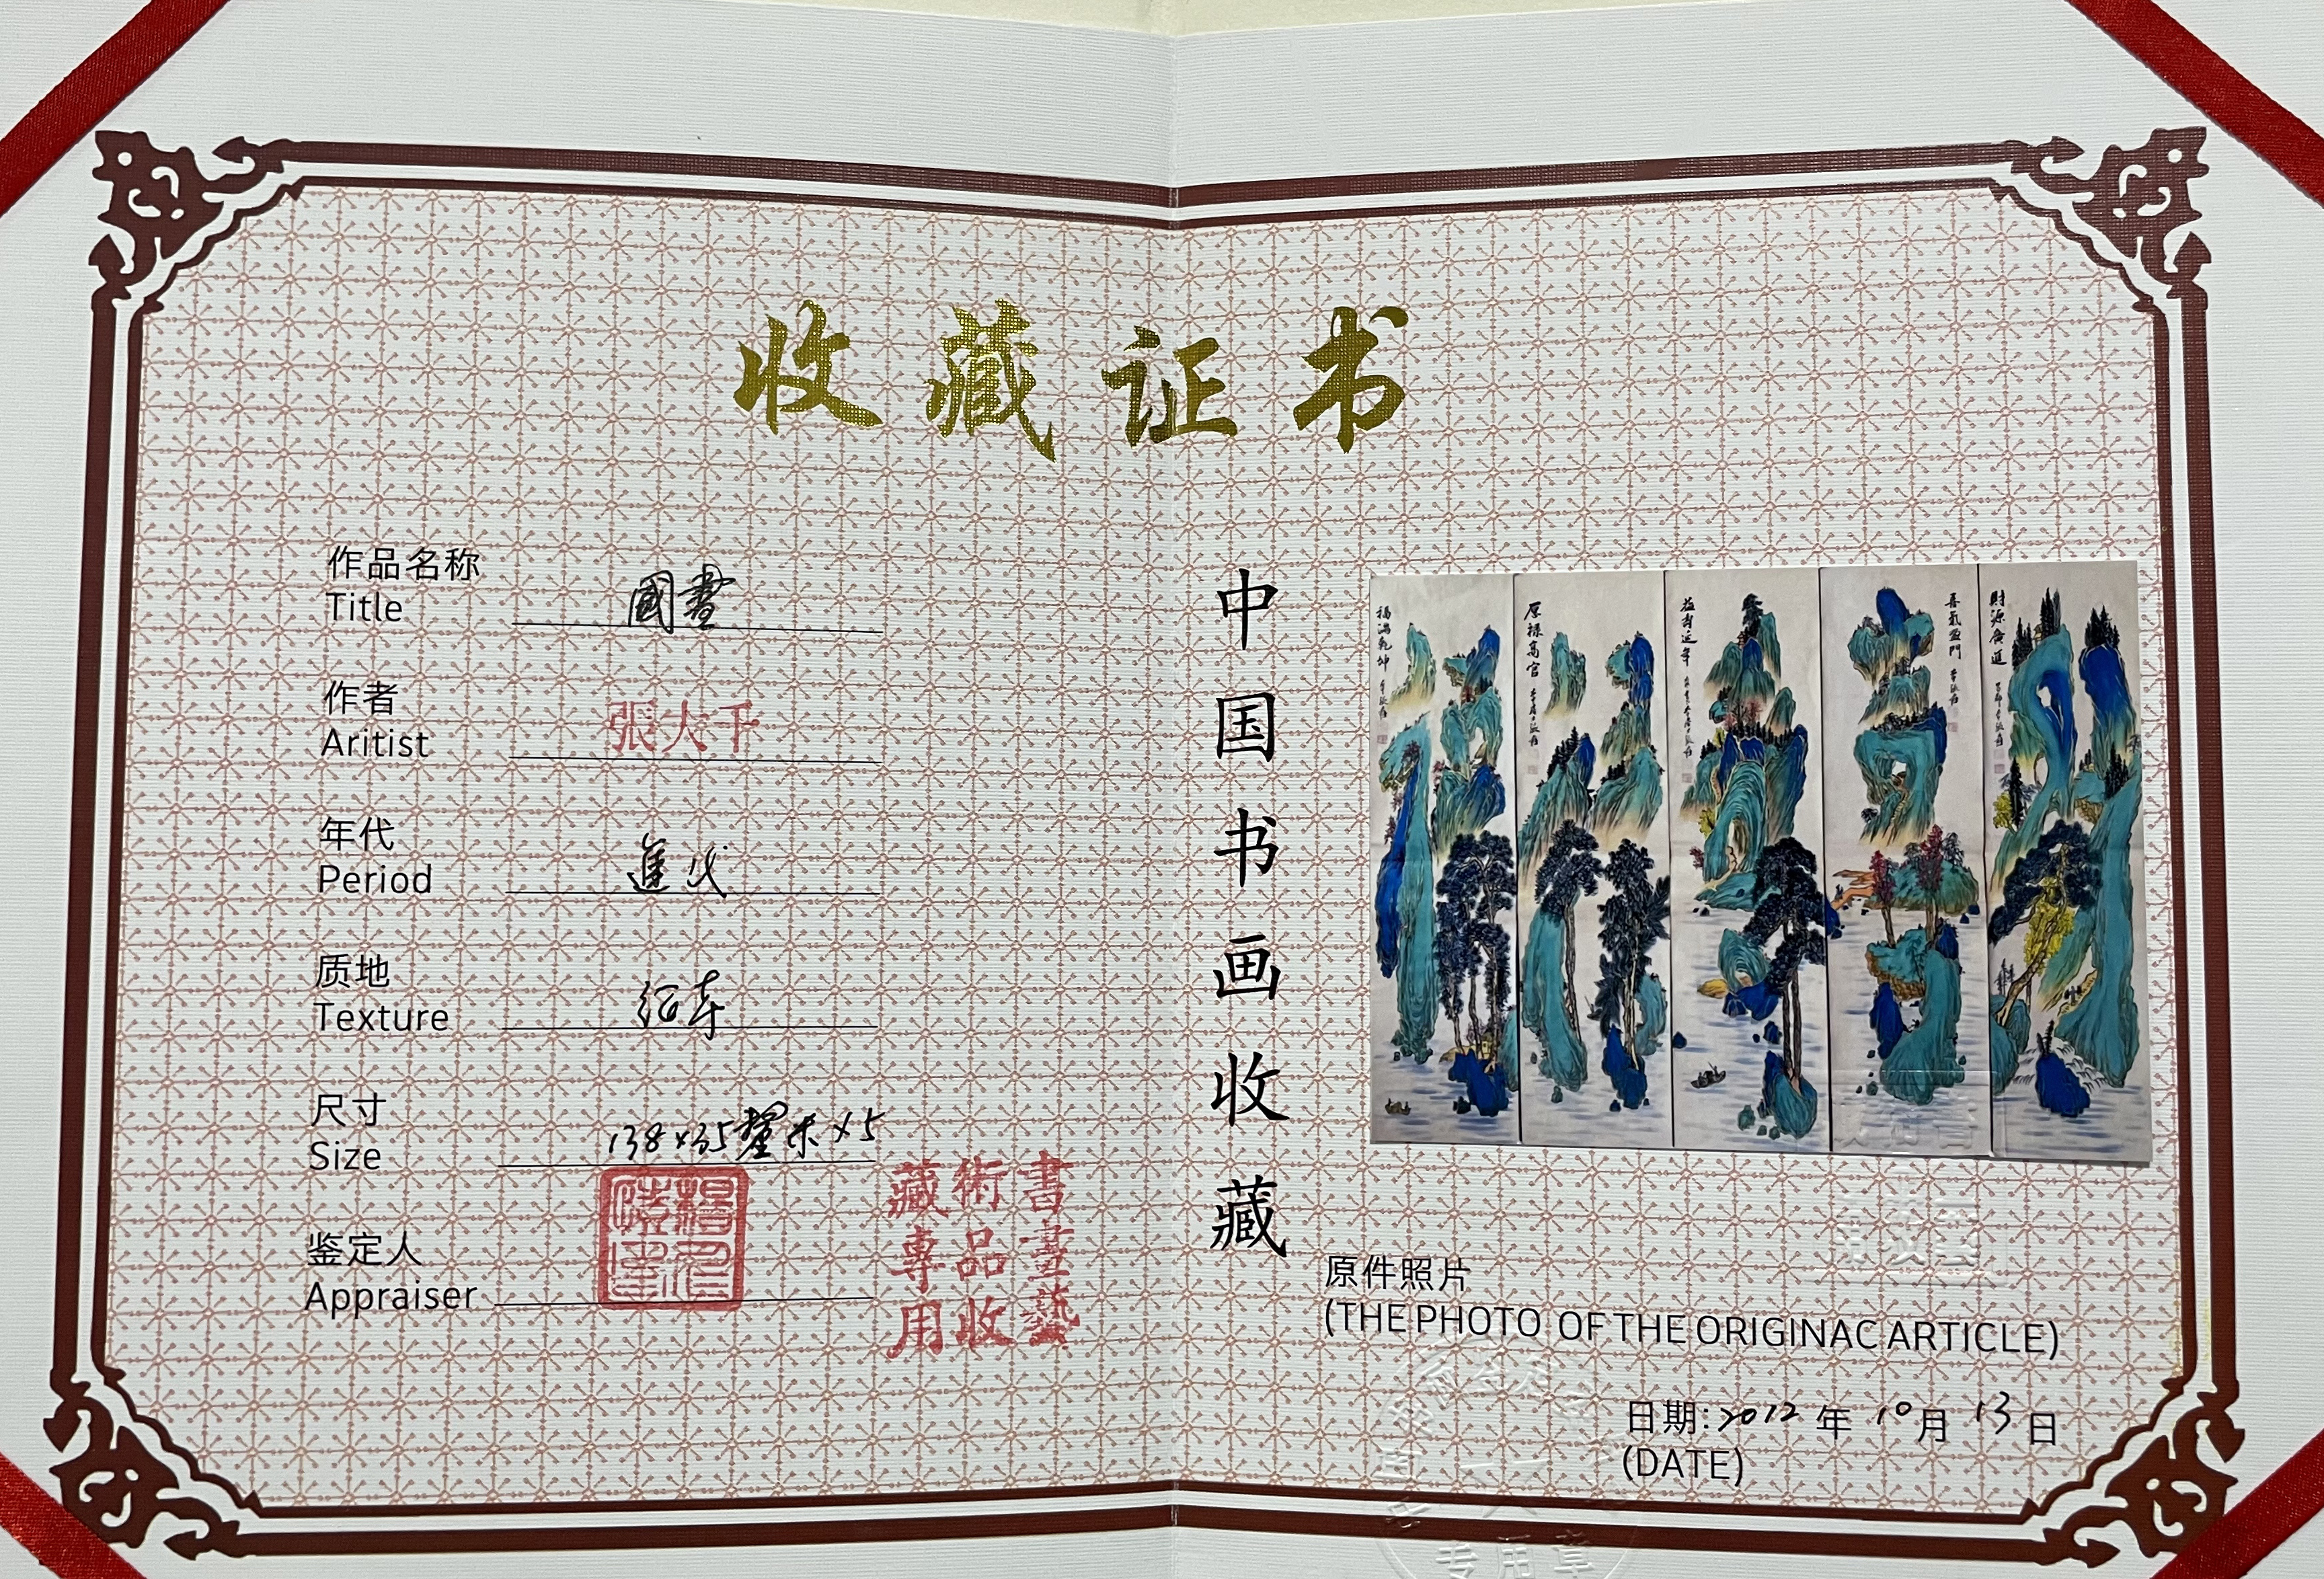 收藏证书
作品名称
Title
國畫
作者
Aritist
張大千
年代
Period
進代
质地
Texture
纸本
尺寸
Size
138×35釐米×5
鉴定人
Appraiser
書畫藝
術品收
藏專用
中国书画收藏
福满乾坤
厚祿高官
益寿延年
喜氣盈門
財源廣進
原件照片
(THE PHOTO OF THE ORIGINAC ARTICLE)
日期:2012年10月13日
(DATE)
专用章